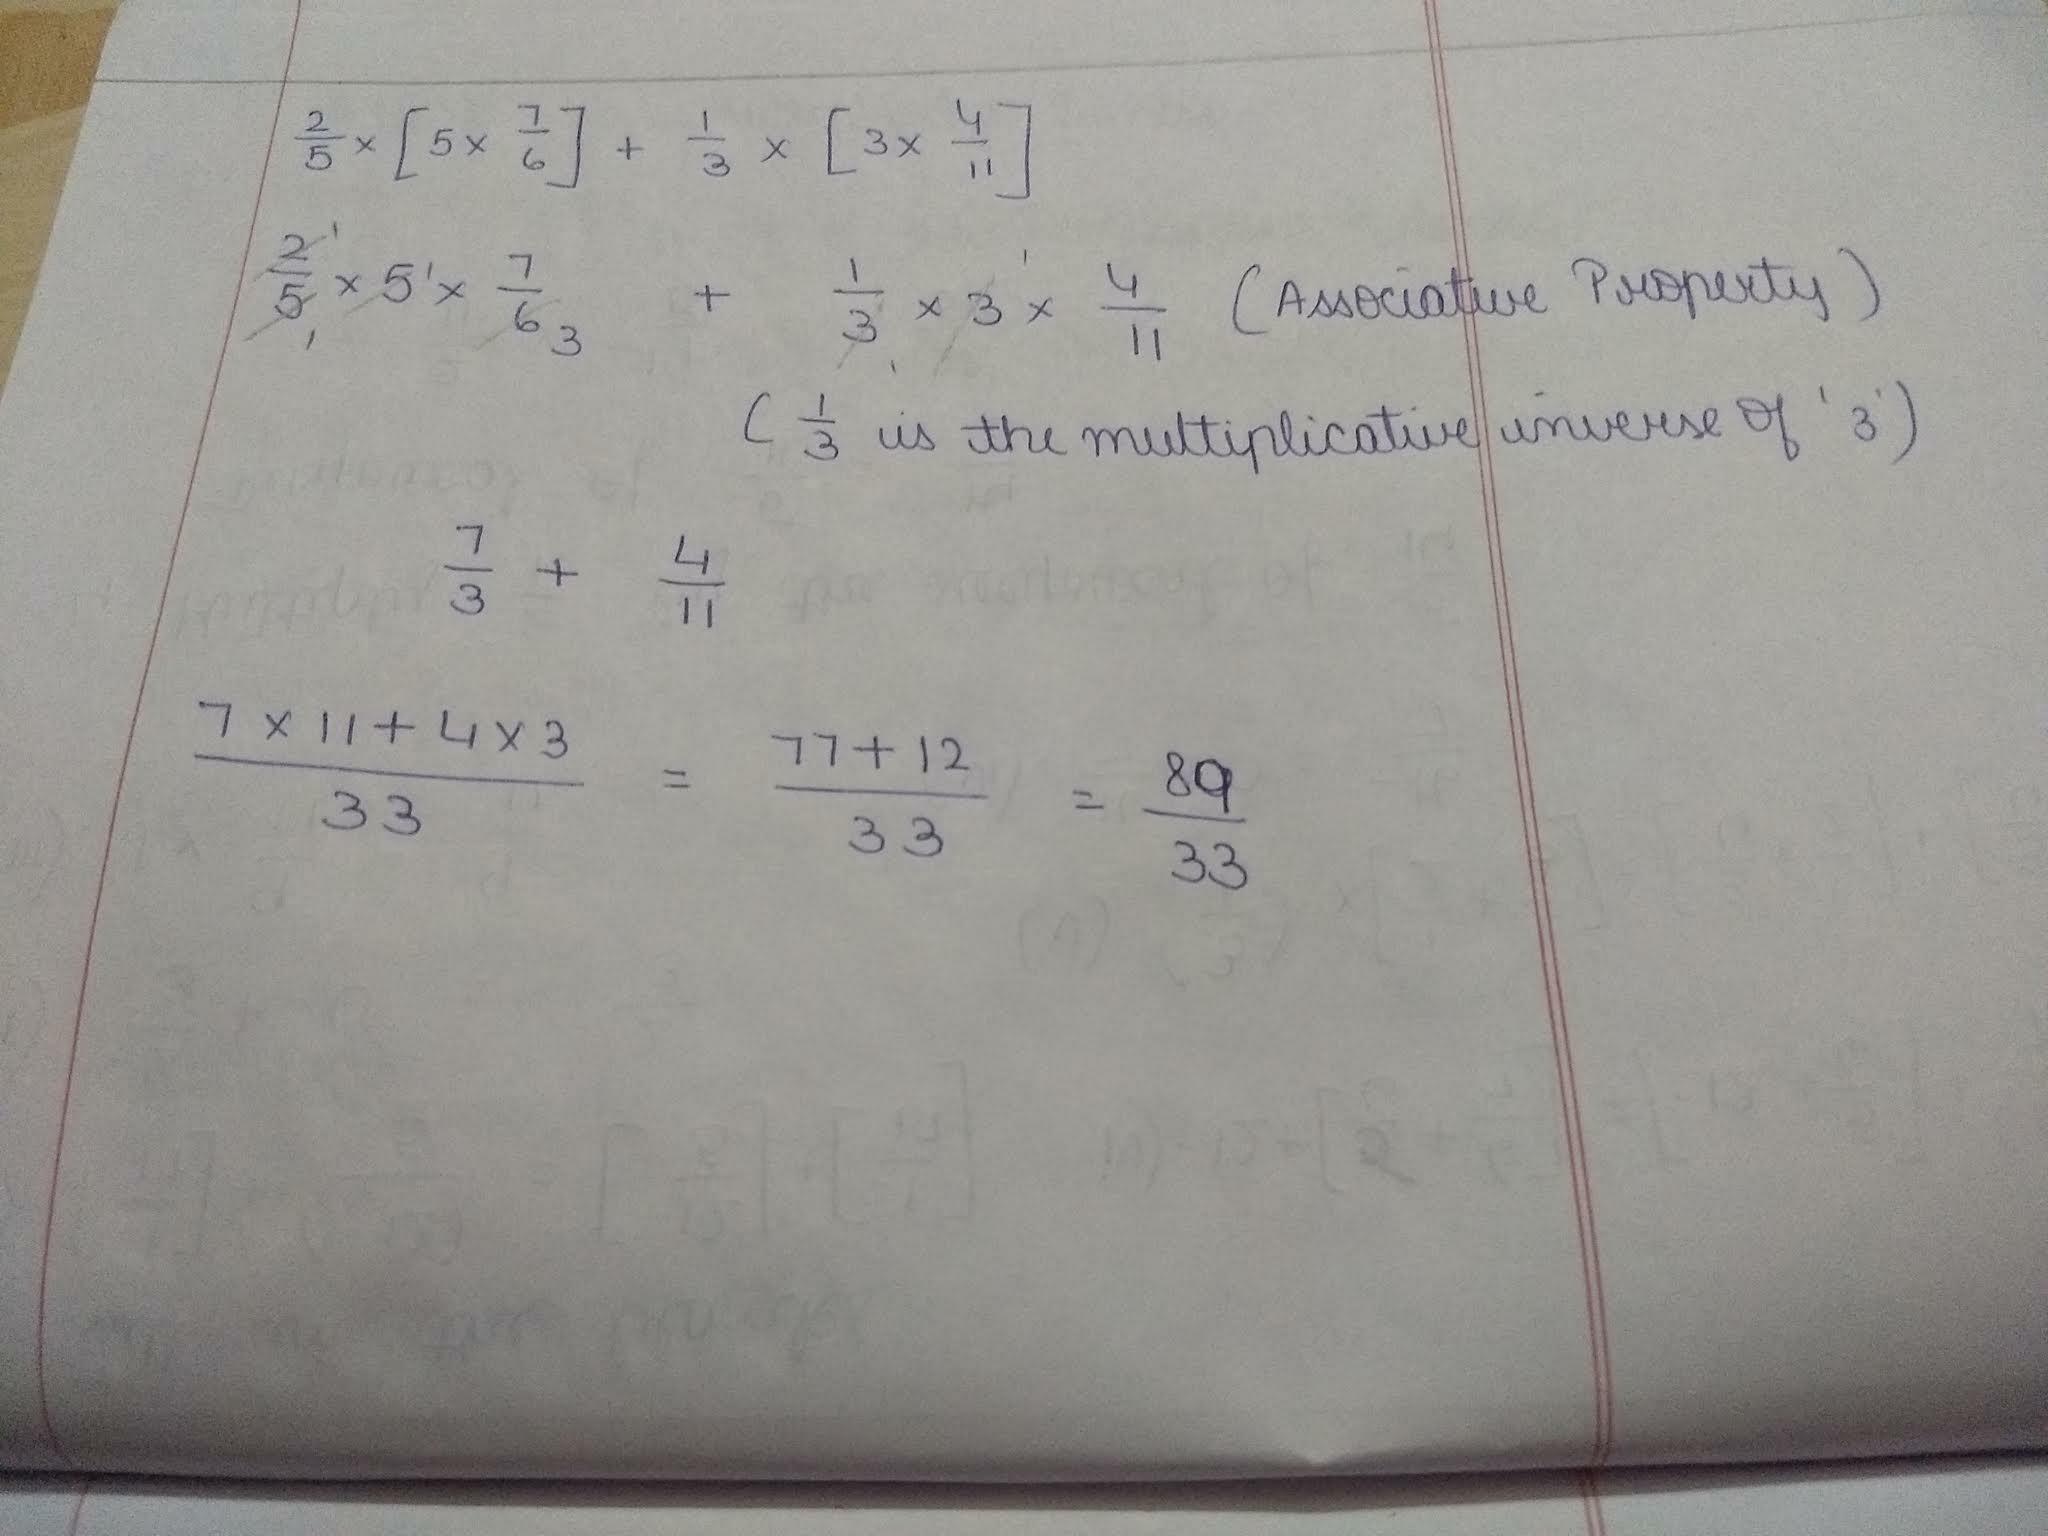 2/5 × [5 × 7/6] + 1/3 × [3 × 4/11]
2/5 × 5 × 7/6 + 1/3 × 3 × 4/11 (Associative Property)
1 1 1 3 1 1
(1/3 is the multiplicative inverse of '3')
7/3 + 4/11
7 × 11 + 4 × 3/33 = 77 + 12/33 = 89/33